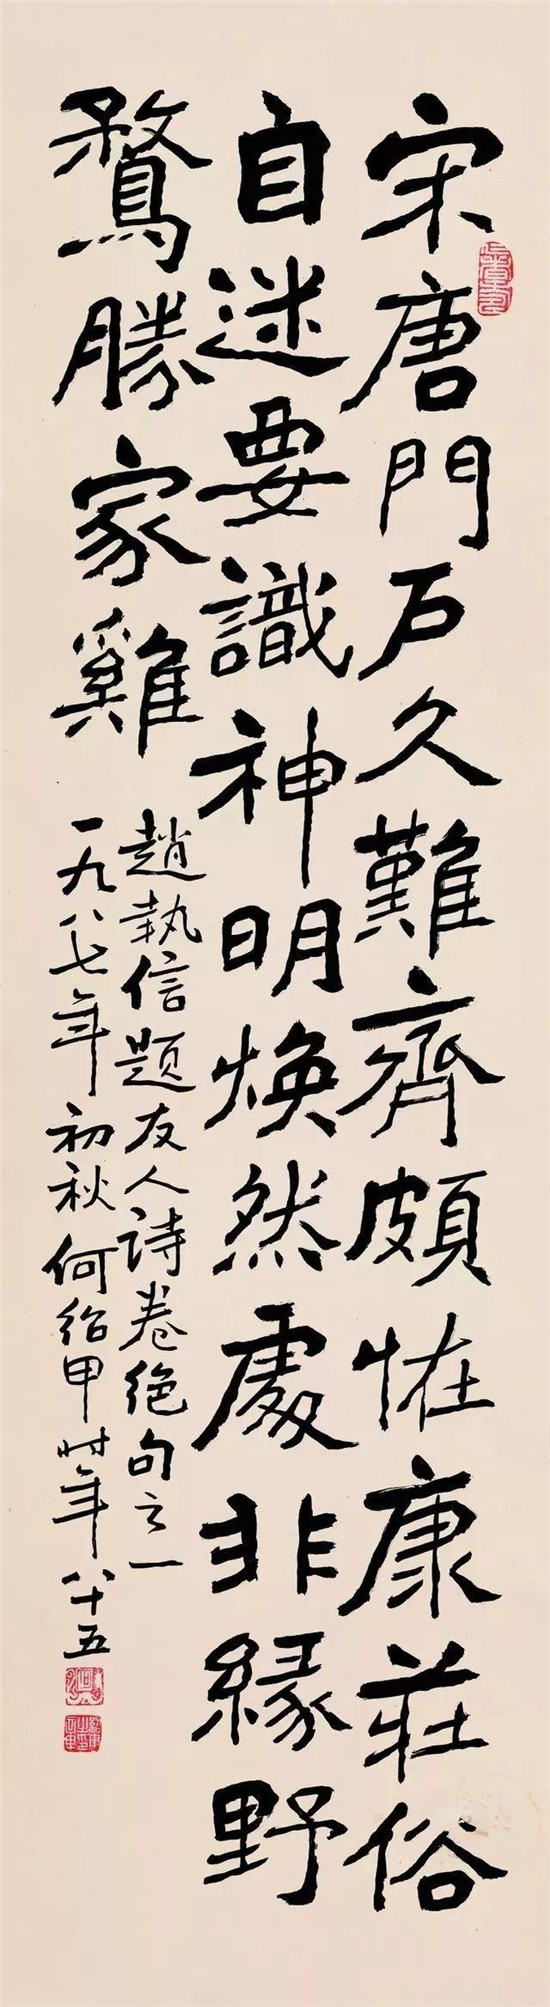 宋唐門戶久難齊頗怪康莊俗
自迷要識神明煥然處非緣野
鶩勝家雞
趙執信題友人詩卷絕句之一
一九八七年初秋何紹甲时年八十五